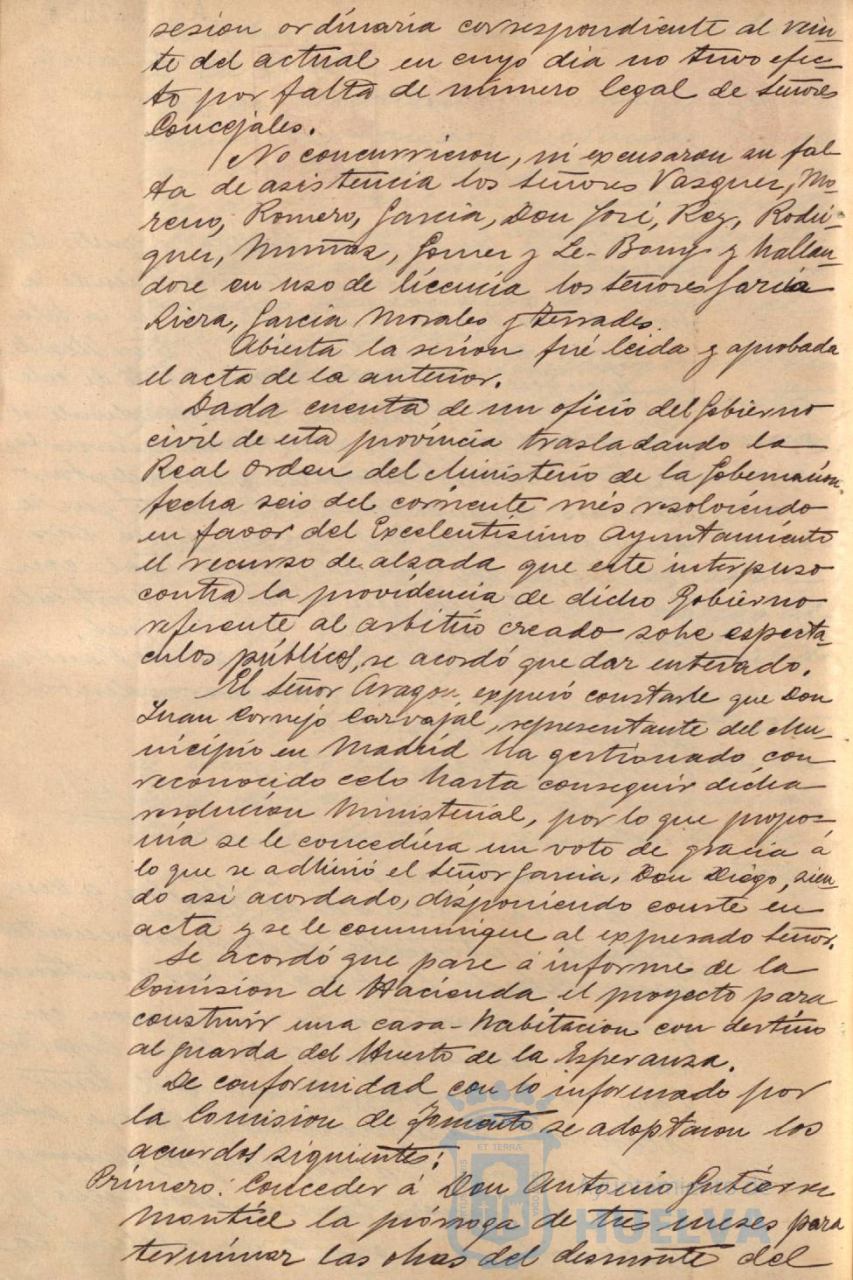 sesion ordinaria correspondiente al vein-
te del actual en cuyo dia no tuvo efec-
to por falta de número legal de Señores
Concejales.
No concurrieron, ni excusaron su fal-
ta de asistencia los Señores Vasquez, Mo-
reno, Romero, Garcia, Don José, Rey, Rodri-
guez, Muñoz, Gomez y Le-Bourg y hallan-
dose en uso de licencia los Señores Garcia
Riera, Garcia Morales y Terrades.
Abierta la sesion fué leida y aprobada
el acta de la anterior.
Dada cuenta de un oficio del Gobierno
civil de esta provincia trasladando la
Real Orden del Ministerio de la Gobernación
fecha seis del corriente més resolviendo
en favor del Excelentisimo Ayuntamiento
el recurso de alzada que este interpuso
contra la providencia de dicho Gobierno
referente al arbitrio creado sobre espectá-
culos públicos, se acordó quedar enterado.
El Señor Aragon expuso constarle que Don
Juan Cornejo Carvajál, representante del Mu-
nicipio en Madrid ha gestionado con
reconocido celo hasta conseguir dicha
resolución Ministerial, por lo que propo-
nia se le concediera un voto de gracia á
lo que se adhirió el Señor Garcia, Don Diego, sien-
do asi acordado, disponiendo conste en
acta y se le comunique al expresado Señor.
Se acordó que pase á informe de la
Comision de Hacienda el proyecto para
construir una casa-habitacion con destino
al guarda del Huerto de la Esperanza.
De conformidad con lo informado por
la Comision de Fomento se adoptaron los
acuerdos siguientes:
Primero: Conceder á Don Antonio Gutiérrez
Montiel la prórroga de tres meses para
terminar las obras del desmonte del
ET TERRA
HUELVA